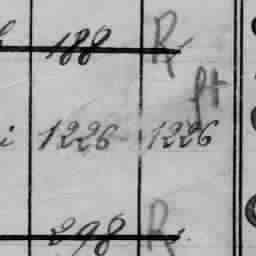 188 R
ft
1226 1226
298 R